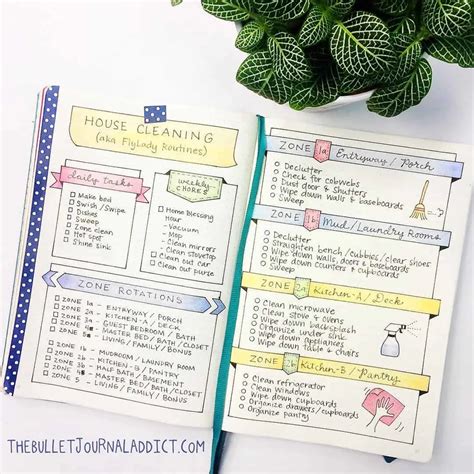 HOUSE CLEANING
(aka FlyLady Routines)
daily tasks
Make bed
Swish/Swipe
Dishes
Sweep
Zone clean
Hot spot
Shine sink
weekly
CHORES
Home Blessing
Hour
- Vacuum
- Mop
- Clean mirrors
- Clean stovetop
Clean out car
Clean out purse
ZONE ROTATIONS
ZONE 1a - ENTRYWAY / PORCH
ZONE 2a - KITCHEN-A / DECK
ZONE 3a - GUEST BEDROOM / BATH
ZONE 4a - MASTER BED / BATH / CLOSET
ZONE 5 - LIVING / FAMILY / BONUS
ZONE 1b - MUDROOM / LAUNDRY ROOM
ZONE 2b - KITCHEN-B / PANTRY
ZONE 3b - HALF BATH / BASEMENT
ZONE 4b - MASTER BED / BATH / CLOSET
ZONE 5 - LIVING / FAMILY / BONUS
ZONE 1a Entryway / Porch
Declutter
Check for cobwebs
Dust door & shutters
Wipe down walls & baseboards
Sweep
ZONE 1b Mud/Laundry Rooms
Declutter
Straighten bench/cubbies/clear shoes
Wipe down walls, doors & baseboards
Wipe down counters & cupboards
Sweep
ZONE 2a Kitchen-A / Deck
Clean microwave
Clean stove ovens
Wipe down backsplash
Organize under sink
Wipe down appliances
Wipe down table & chairs
ZONE 2b Kitchen-B / Pantry
Clean refrigerator
Clean Windows
Organize drawers/cupboards
Organize pantry
THEBULLETJOURNALADDICT.COM